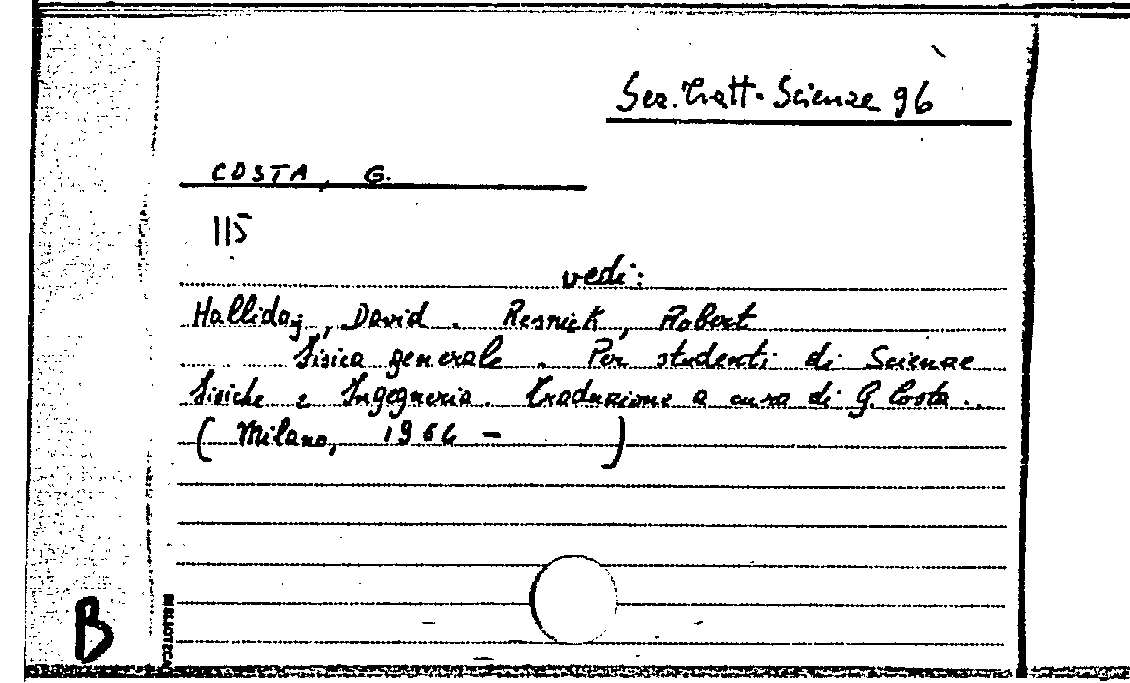 Sez. Tratt. Scienze 96
COSTA, G.
115
vedi:
Halliday, David. Resnick, Robert
Fisica generale. Per studenti di Scienze
Fisiche e Ingegneria. Traduzione a cura di G. Costa..
( Milano, 1964 - )
B
BIBLIOTECA